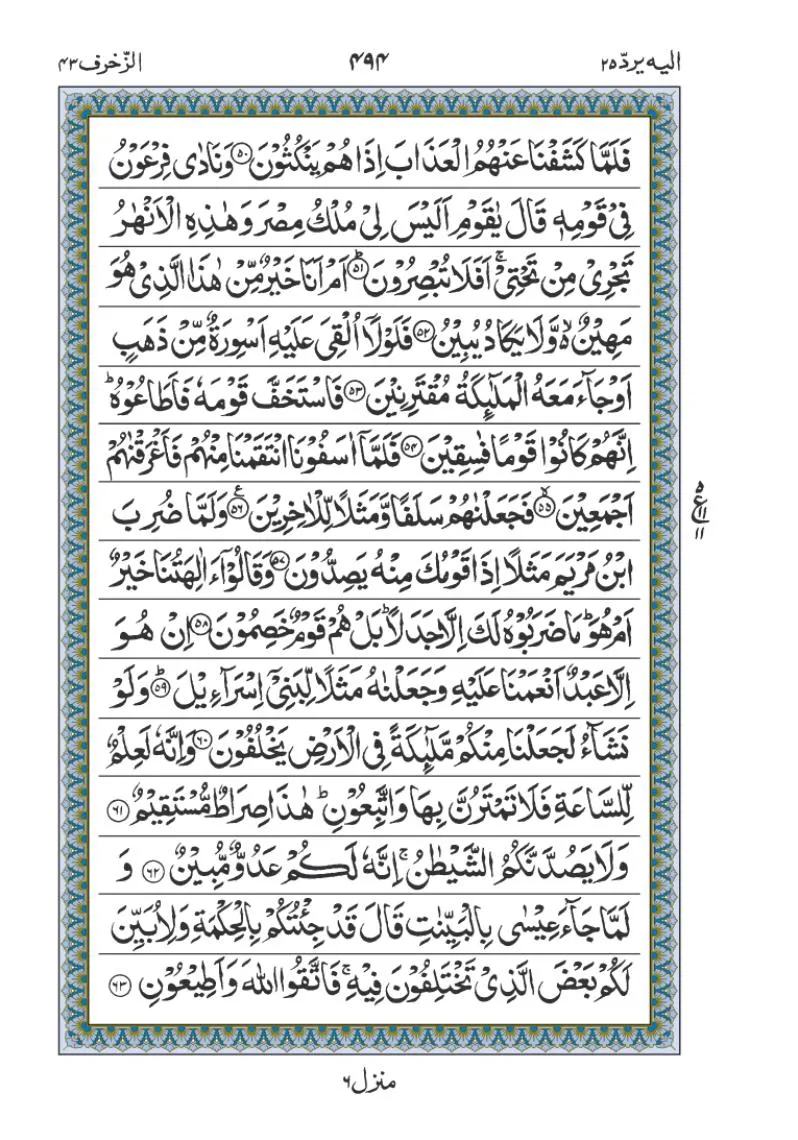 الیه یردّ ۲۵ ۴۹۴ الزّخرف ۴۳
فَلَمَّا كَشَفْنَا عَنْهُمُ الْعَذَابَ اِذَا هُمْ يَنْكُثُوْنَ ۝۵۰ وَنَادٰى فِرْعَوْنُ
فِيْ قَوْمِهٖ قَالَ يٰقَوْمِ اَلَيْسَ لِيْ مُلْكُ مِصْرَ وَهٰذِهِ الْاَنْهٰرُ
تَجْرِيْ مِنْ تَحْتِيْ ۚ اَفَلَا تُبْصِرُوْنَ ۝۵۱ؕ اَمْ اَنَا خَيْرٌ مِّنْ هٰذَا الَّذِيْ هُوَ
مَهِيْنٌ ۙ۬ وَّلَا يَكَادُ يُبِيْنُ ۝۵۲ فَلَوْلَاۤ اُلْقِيَ عَلَيْهِ اَسْوِرَةٌ مِّنْ ذَهَبٍ
اَوْ جَآءَ مَعَهُ الْمَلٰٓئِكَةُ مُقْتَرِنِيْنَ ۝۵۳ فَاسْتَخَفَّ قَوْمَهٗ فَاَطَاعُوْهُ ؕ
اِنَّهُمْ كَانُوْا قَوْمًا فٰسِقِيْنَ ۝۵۴ فَلَمَّاۤ اٰسَفُوْنَا انْتَقَمْنَا مِنْهُمْ فَاَغْرَقْنٰهُمْ
اَجْمَعِيْنَ ۝۵۵ۙ فَجَعَلْنٰهُمْ سَلَفًا وَّمَثَلًا لِّلْاٰخِرِيْنَ ۝۵۶ع وَلَمَّا ضُرِبَ
ابْنُ مَرْيَمَ مَثَلًا اِذَا قَوْمُكَ مِنْهُ يَصِدُّوْنَ ۝۵۷ وَقَالُوْۤا ءَاٰلِهَتُنَا خَيْرٌ
اَمْ هُوَ ؕ مَا ضَرَبُوْهُ لَكَ اِلَّا جَدَلًا ؕ بَلْ هُمْ قَوْمٌ خَصِمُوْنَ ۝۵۸ اِنْ هُوَ
اِلَّا عَبْدٌ اَنْعَمْنَا عَلَيْهِ وَجَعَلْنٰهُ مَثَلًا لِّبَنِيْۤ اِسْرَآءِيْلَ ۝۵۹ؕ وَلَوْ
نَشَآءُ لَجَعَلْنَا مِنْكُمْ مَّلٰٓئِكَةً فِي الْاَرْضِ يَخْلُفُوْنَ ۝۶۰ وَاِنَّهٗ لَعِلْمٌ
لِّلسَّاعَةِ فَلَا تَمْتَرُنَّ بِهَا وَاتَّبِعُوْنِ ؕ هٰذَا صِرَاطٌ مُّسْتَقِيْمٌ ۝۶۱
وَلَا يَصُدَّنَّكُمُ الشَّيْطٰنُ ۚ اِنَّهٗ لَكُمْ عَدُوٌّ مُّبِيْنٌ ۝۶۲ وَ
لَمَّا جَآءَ عِيْسٰى بِالْبَيِّنٰتِ قَالَ قَدْ جِئْتُكُمْ بِالْحِكْمَةِ وَلِاُبَيِّنَ
لَكُمْ بَعْضَ الَّذِيْ تَخْتَلِفُوْنَ فِيْهِ ۚ فَاتَّقُوا اللّٰهَ وَاَطِيْعُوْنِ ۝۶۳
۵
ع ۱۱
۱۱
منزل ۶